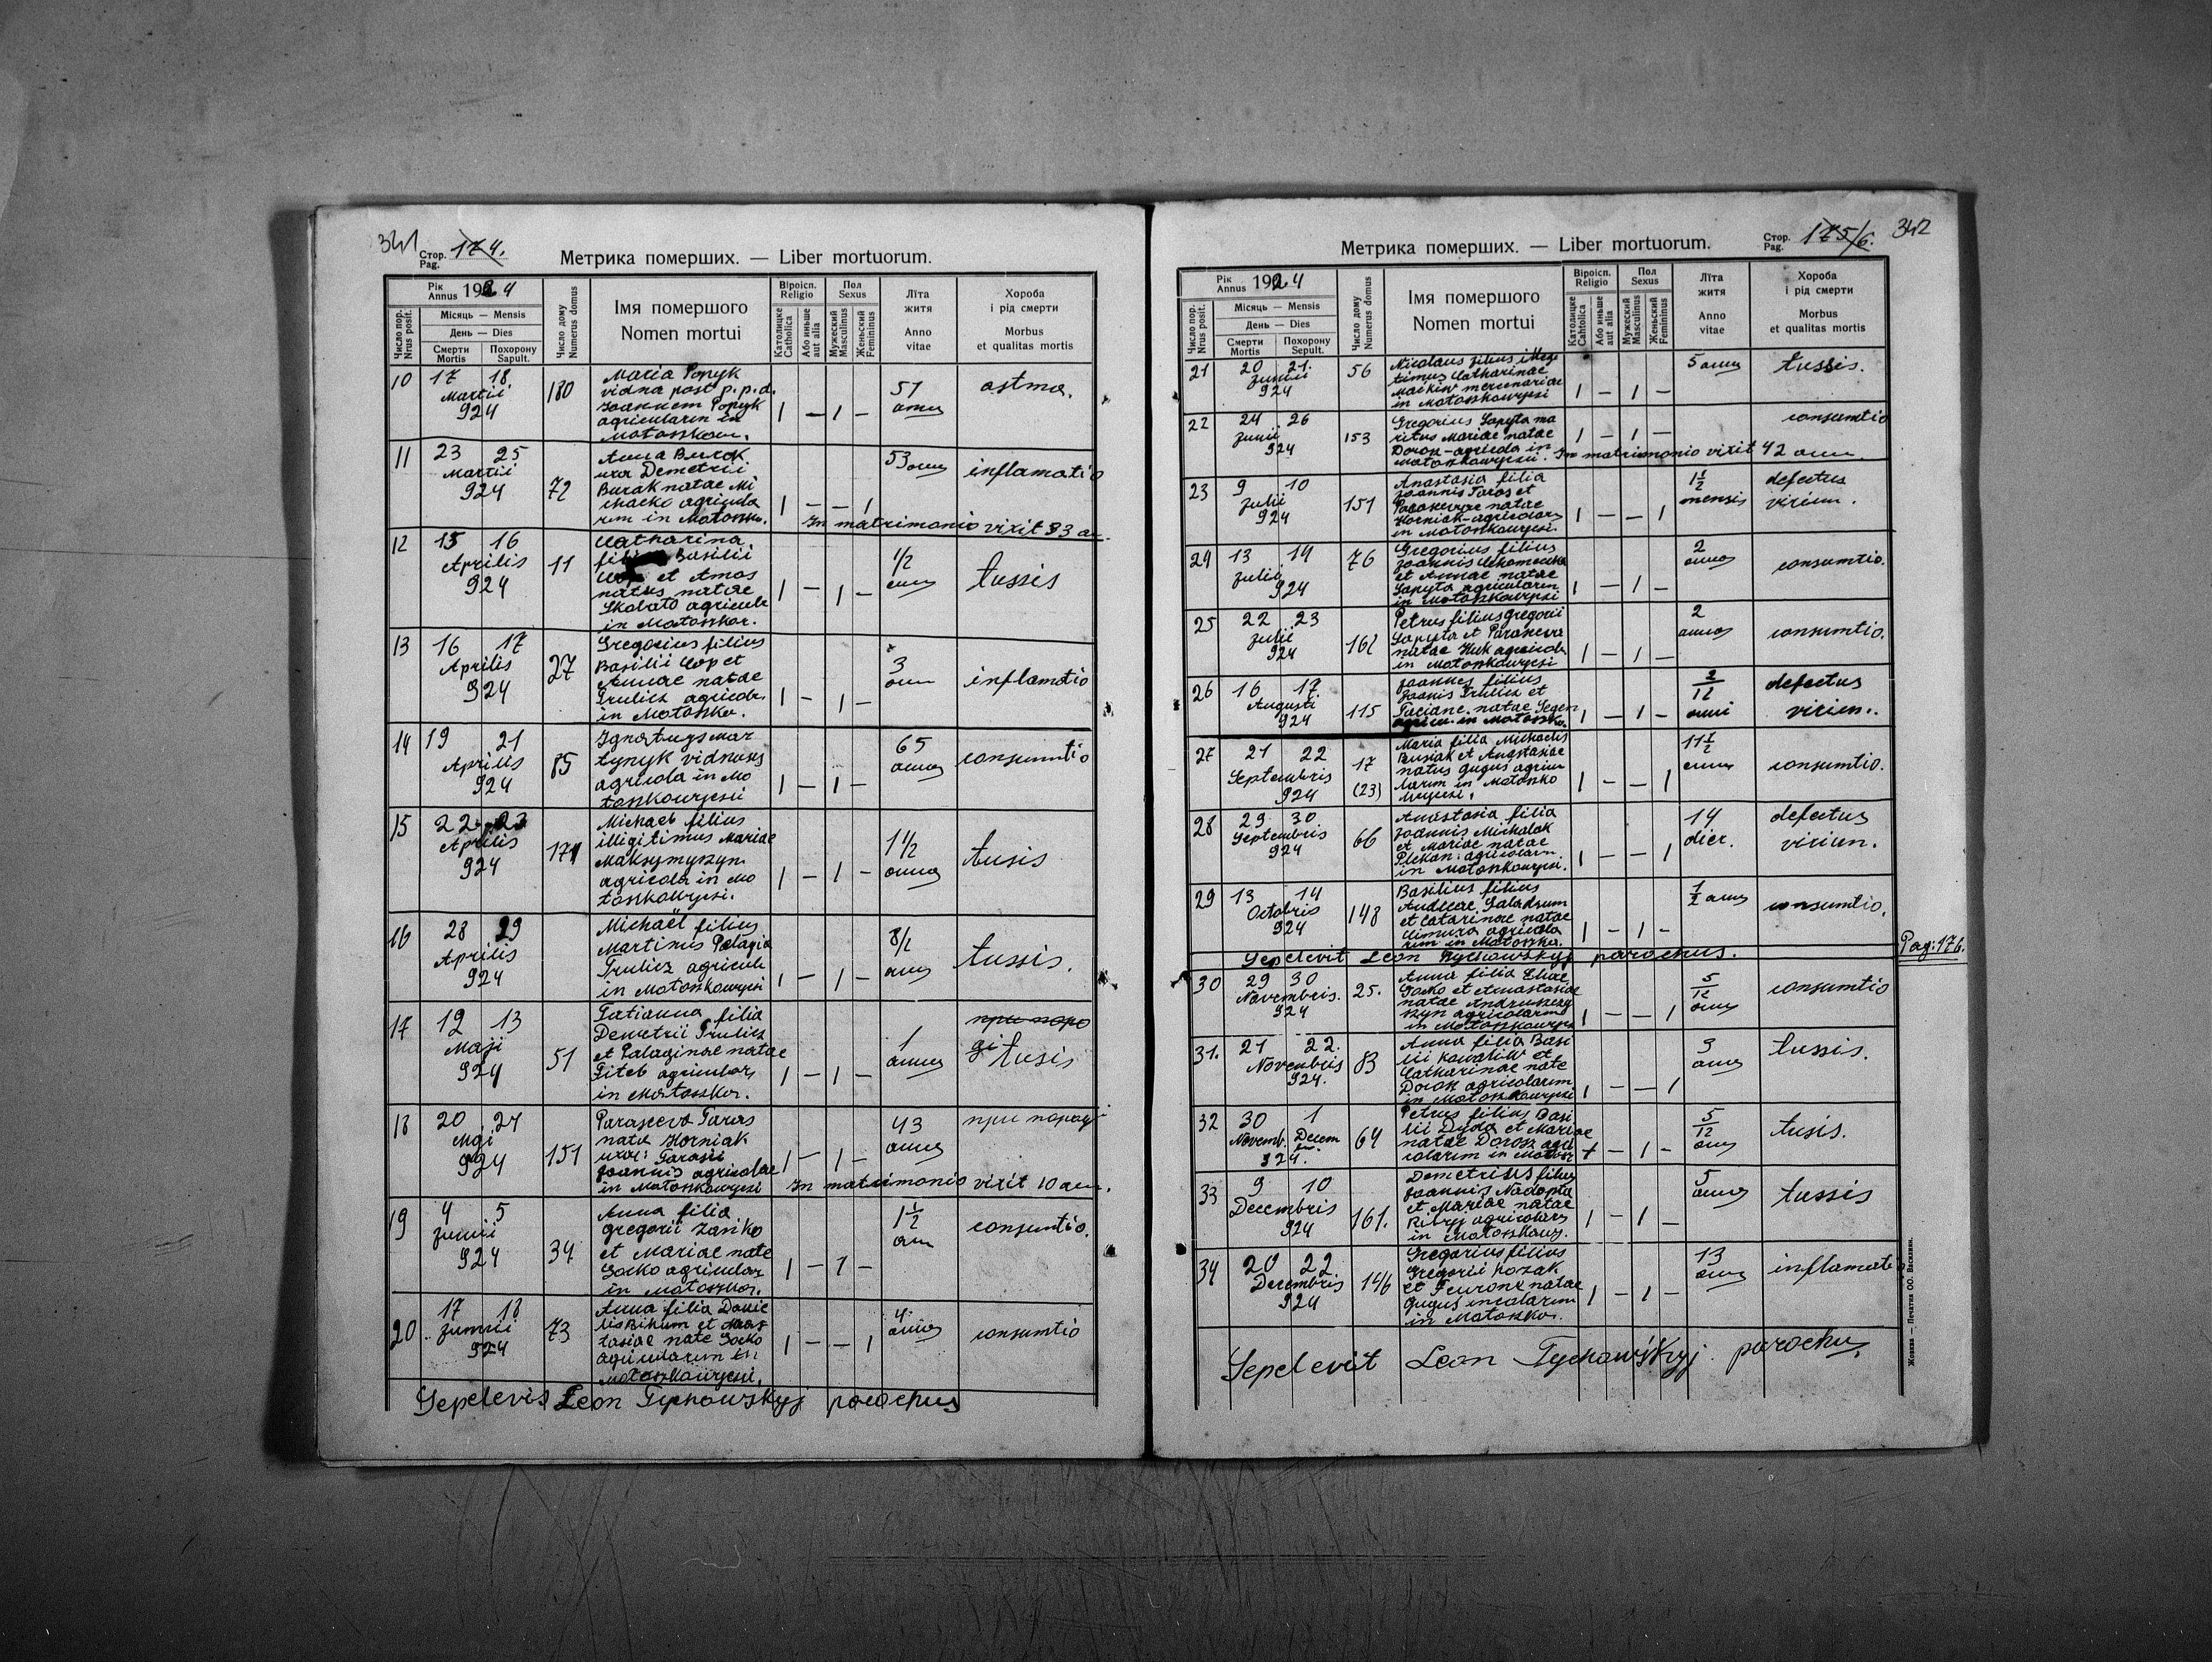 341
Стор.
Pag. 174.
Метрика померших. — Liber mortuorum.
Рік
Annus 1924
Число пор.
Nrus posit.
Місяць — Mensis
День — Dies
Смерти
Mortis
Похорону
Sapult.
Число дому
Numerus domus
Імя помершого
Nomen mortui
Віроісп.
Religio
Католицке
Catholica
Або иньше
aut alia
Пол
Sexus
Мужеский
Masculinus
Женьский
Femininus
Лїта
житя
Anno
vitae
Хороба
і рід смерти
Morbus
et qualitas mortis
10
17 18
Martii
924
180
Maria Popyk
vidna post p.p.d.
Joannem Popyk
agricularum in
Matoszkow.
1 — 1 —
51
annus
astma.
11
23 25
Martii
924
72
Anna Burak
uxor Demetrii
Burak natae Mi
chacko agricula
rum in Matoszko.
1 — — 1
53 annus
inflamatio
In matrimonio vixit 33 an.
12
15 16
Aprilis
924
11
Catharina
Basilii
et Anas
natus natae
Skobato agricula
in Matoszkor.
1 — 1 —
1/2
annus
tussis
13
16 17
Aprilis
924
27
Gregorius filius
Basilii Cop et
Annae natae
Trulicz agricola
in Matoszko.
1 — 1 —
3
ann
inflamatio
14
19 21
Aprilis
924
85
Ignatuys Mar
tynyk vidnous
agricola in Mo
toszkowycsii
1 — 1 —
65
annus
consumtio
15
22 23
Aprilis
924
171
Michael filius
illigitimus Mariae
Maksymyszyn
agricola in Mo
toszkowycsi.
1 — 1 —
1 1/2
annus
tusis
16
28 29
Aprilis
924
Michaël filius
Martinus Pelagia
Trulicz agricula
in Matoszkowycsi
1 — 1 —
8/2
anus
tussis.
17
12 13
Maji
924
51
Tatianna filia
Demetrii Trulicz
et Palaginae natae
Titeb agricolars
in Matoszkor.
1 — 1 —
1
annus
при поро
gi tusis
18
20 24
Maji
924
151
Parasceva Taras
nata Horniak
uxor: Tarasii
Joannis agricolae
in Matoszkowycsi
1 — 1 —
43
annus
при пороgi
In matrimonio vixit 10 ann.
19
4 5
Junii
924
34
Anna filia
Gregorii Zanko
et Mariae nate
Gocko agricular
in Matoszkor.
1 — 1 —
1 1/2
ann
consumtio.
20
17 18
Junii
924
73
Anna filia Danie
lis Bikum et Anas
tasiae nate Gocko
agricularum in
Matoszkowycsi.
1 — — 1
4
annus
consumtio
Sepelevit Leon Tychowskyj parochus
Стор.
Pag. 175/6. 342
Метрика померших. — Liber mortuorum.
Рік
Annus 1924
Число пор.
Nrus posit.
Місяць — Mensis
День — Dies
Смерти
Mortis
Похорону
Sepult.
Число дому
Numerus domus
Імя помершого
Nomen mortui
Віроісп.
Religio
Католицке
Cahtolica
Або иньше
aut alia
Пол
Sexus
Мужеский
Masculinus
Женьский
Femininus
Лїта
житя
Anno
vitae
Хороба
і рід смерти
Morbus
et qualitas mortis
21
20 21.
Junii
924
56
Nicolaus filius illege
timus Catharinae
Maikiw mercenariae
in Matoszkowycsi
1 — 1 —
5 annus
tussis.
22
24 26
Junii
924
153
Gregorius Sapyta ma
ritus Mariae natae
Dorosz-agricola in
Matoszkowycsii.
1 — 1 —
consumtio
In matrimonio vixit 42 ann.
23
9 10
Julii
924
151
Anastasia filia
Joannis Taras et
Parascevae natae
Horniak-agricolars
in Matoszkowycsi.
1 — — 1
1 1/2
mensis
defectus
virium.
24
13 14
Julii
924
76
Gregorius filius
Joannis
et Annae natae
Sapyta agricolarum
in Matoszkowycsi
1 — 1 —
2
annos
consumtio.
25
22 23
Julii
924
162
Petrus filius Gregorii
Sapyta et Parasceva
natae Huk agricola
in Matoszkowycsi
1 — 1 —
2
annos
consumtio.
26
16 17.
Augusti
924
115
Joannes filius
Joanis Trulicz et
Taciane natae Segen
agricu. in Matoszko.
1 — 1 —
2/12
anni
defectus
virium.
27
21 22
Septembris
924
17
(23)
Maria filia Michaelis
Busiak et Anastasiae
natus Gugus agricu
larum in Matoszko
wycsi.
1 — — 1
11 1/2
annus
consumtio.
28
29 30
Septembris
924
66
Anastasia filia
Joannis Michalak
et Mariae natae
Plekan agricolarum
in Matoszkowycsi.
1 — — 1
14
dier.
defectus
virium.
29
13 14
Octobris
924
148
Basilius filius
Andreae Galadzum
et Catarinae natae
Cimura agricola
rum in Matoszko.
1 — 1 —
1/2 anus
consumtio.
Sepelevit Leon Tychowskyj parochus.
Pag: 176.
30
29 30
Novembris.
924
25.
Anna filia Eliae
Gocko et Anastasiae
natae Andruszczy
szyn agricolarum
in Matoszkowycsi
1 — — 1
5/12
annus
consumtio
31.
21 22.
Novembris
924.
83
Anna filia Basi
lii Kowaliw et
Catharinae nate
Dorosz agricolarum
in Matoszkowycsi
1 — — 1
3
anus
tussis.
32
30 1
Novemb. Decem
br.
924.
64
Petrus filius Basi
lii Dyda et Mariae
natae Dorosz agri
colarum in Matoszk
1 — 1 —
5/12
anus
tusis.
33
9 10
Decembris
924
161.
Demetrius filius
Joannis Nadopta
et Mariae natae
Ribryj agricolars
in Matoszkowy.
1 — 1 —
5
annos
tussis
34
20 22
Decembris
924
146
Gregorius filius
Gregorii Kozak
et Feurone natae
Gugus incolarum
in Matoszko.
1 — 1 —
13
anus
inflamatio
Sepelevit Leon Tychowśkyj parochus.
Жовква — Печатня ОО. Василиян.